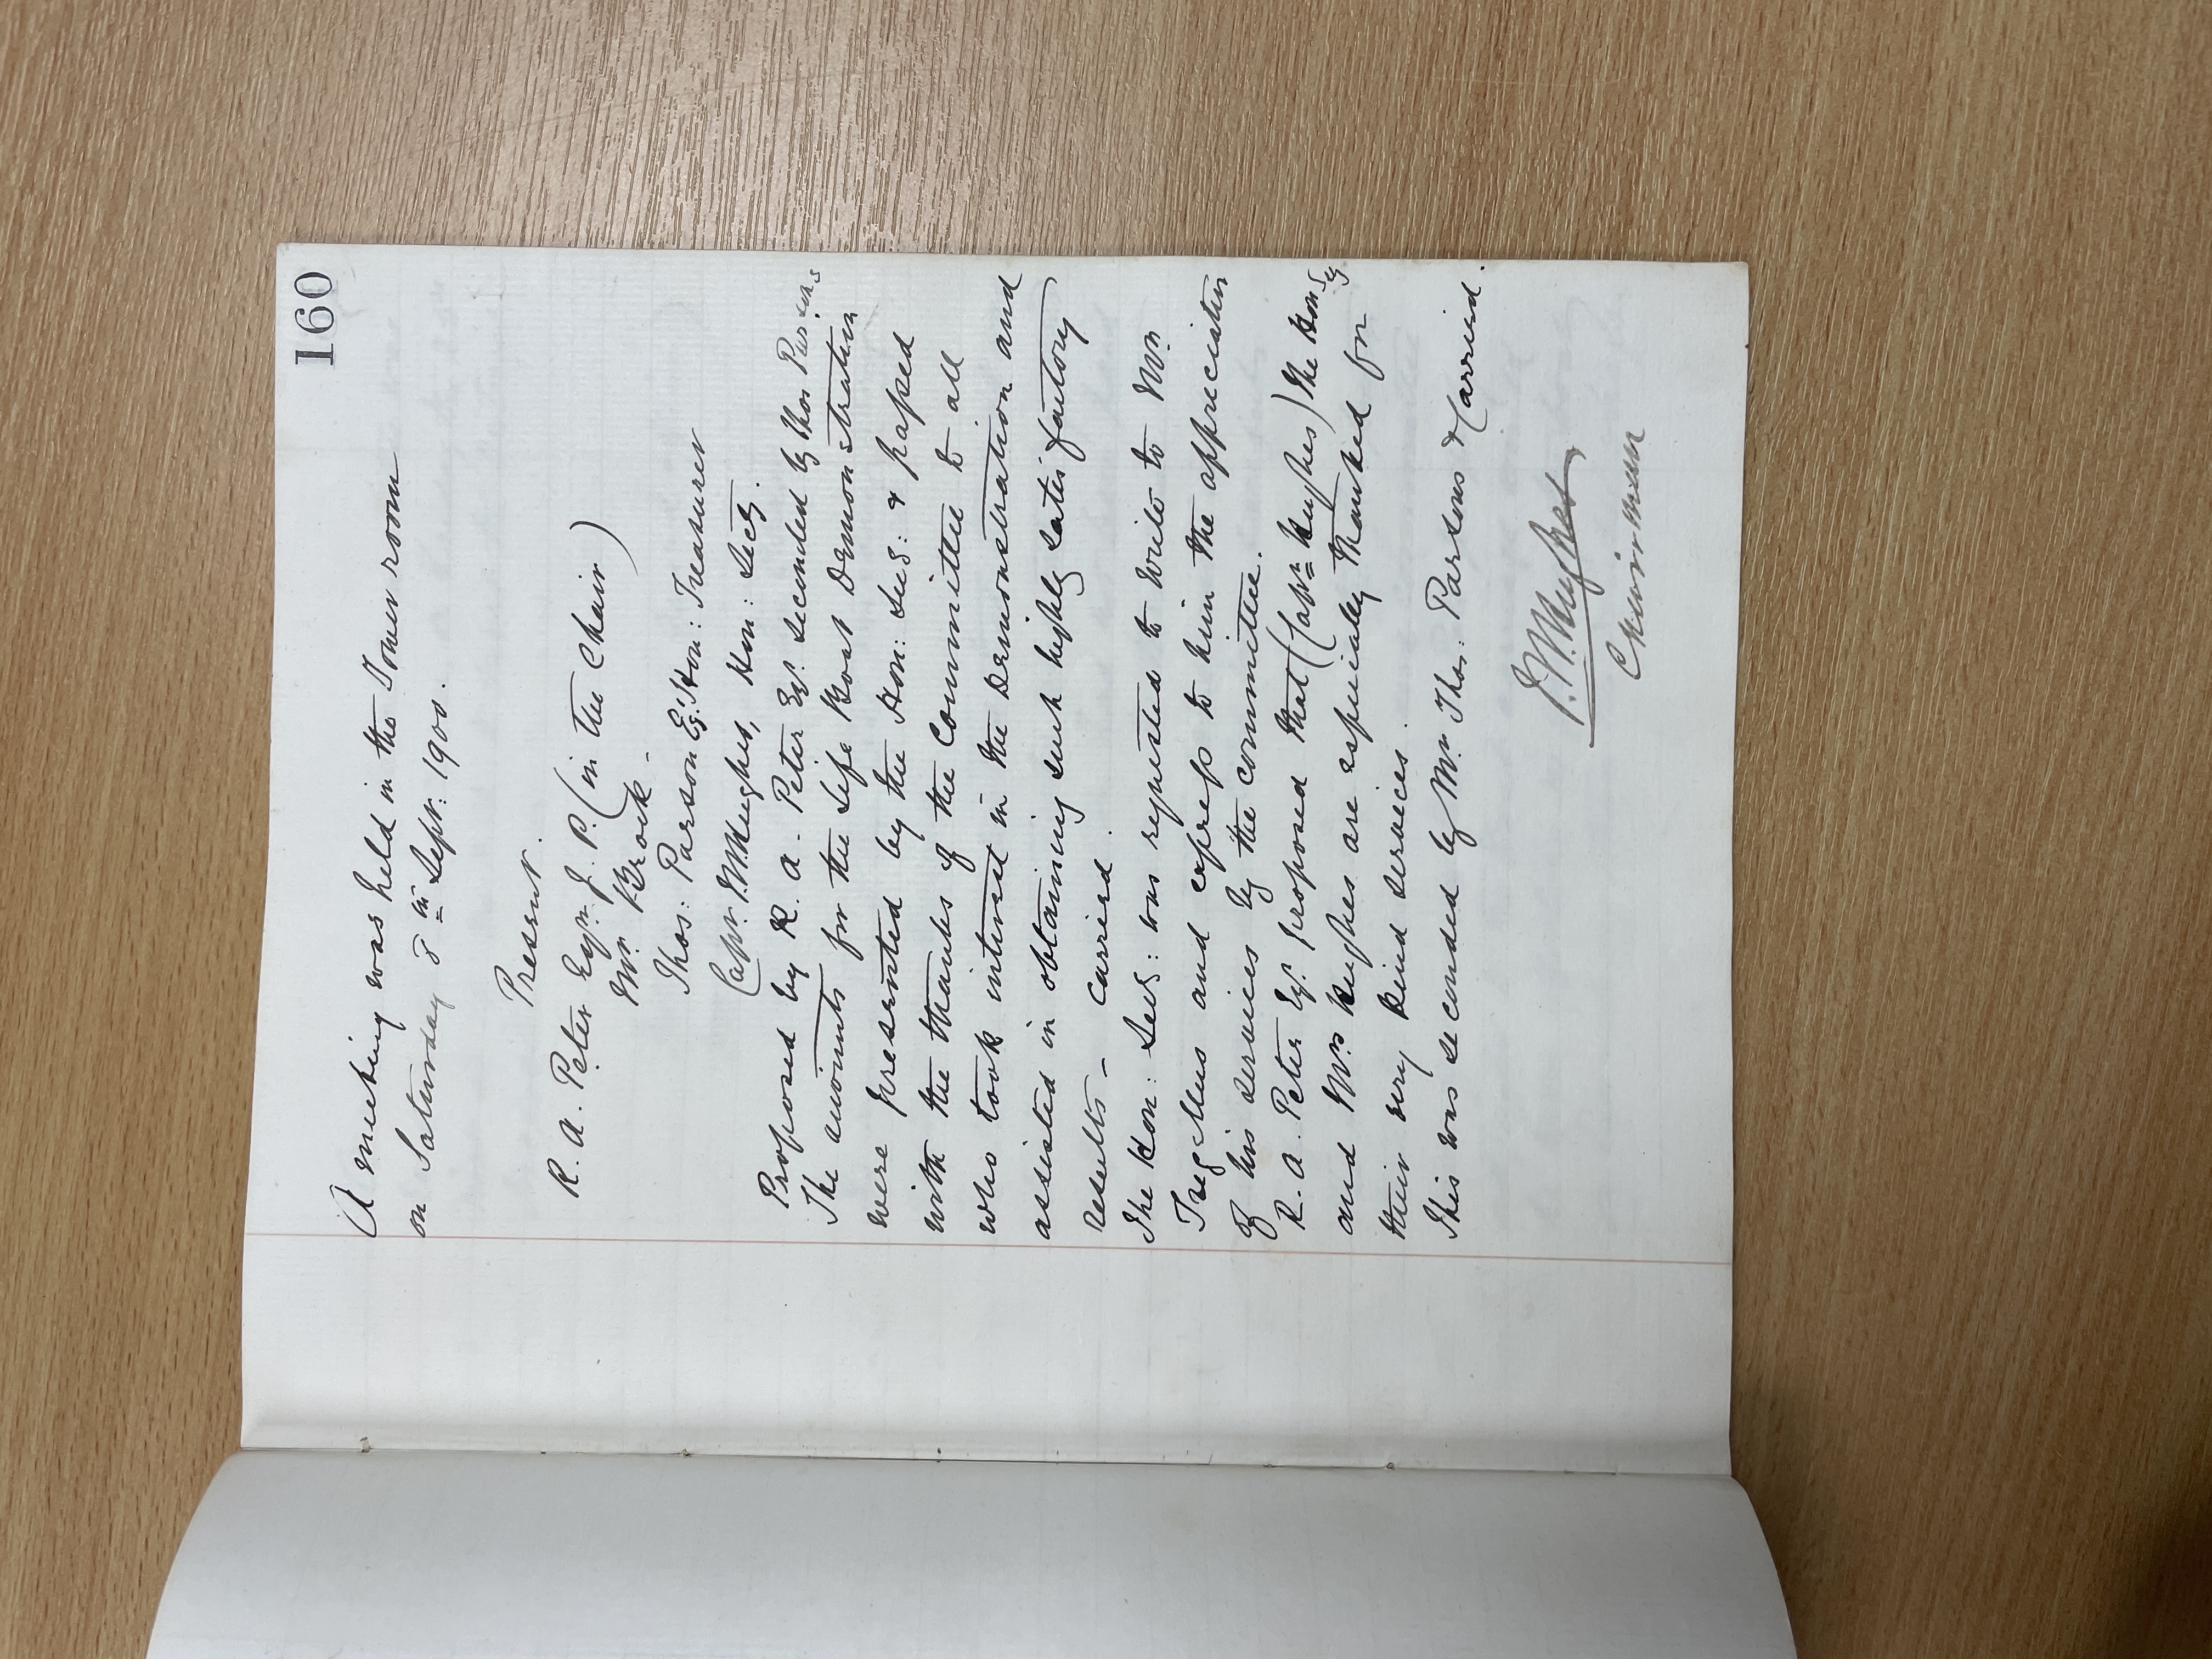 160
A meeting was held in the Tower room
on Saturday 8th Sept: 1900.
Present.
R. A. Peter Esqr. J. P. (in the Chair)
Mr. Brock -
Thos: Parson Esq: Hon: Treasurer
Capt. Hughes, Hon: Secy.
Proposed by R. A. Peter Esq. seconded by Thos Parsons
The accounts for the Life Boat Demonstration
were presented by the Hon: Sec: & passed
with the thanks of the Committee to all
who took interest in the Demonstration and
assisted in obtaining such highly satisfactory
results - carried.
The Hon: Sec: was requested to write to Mr.
Tregellus and express to him the appreciation
of his services by the committee.
R. A. Peter Esq. proposed that (Captn Hughes) the Hon Sey
and Mrs Hughes are especially thanked for
their very kind services.
This was seconded by Mr. Thos: Parsons & Carried.
Hughes
Chairman